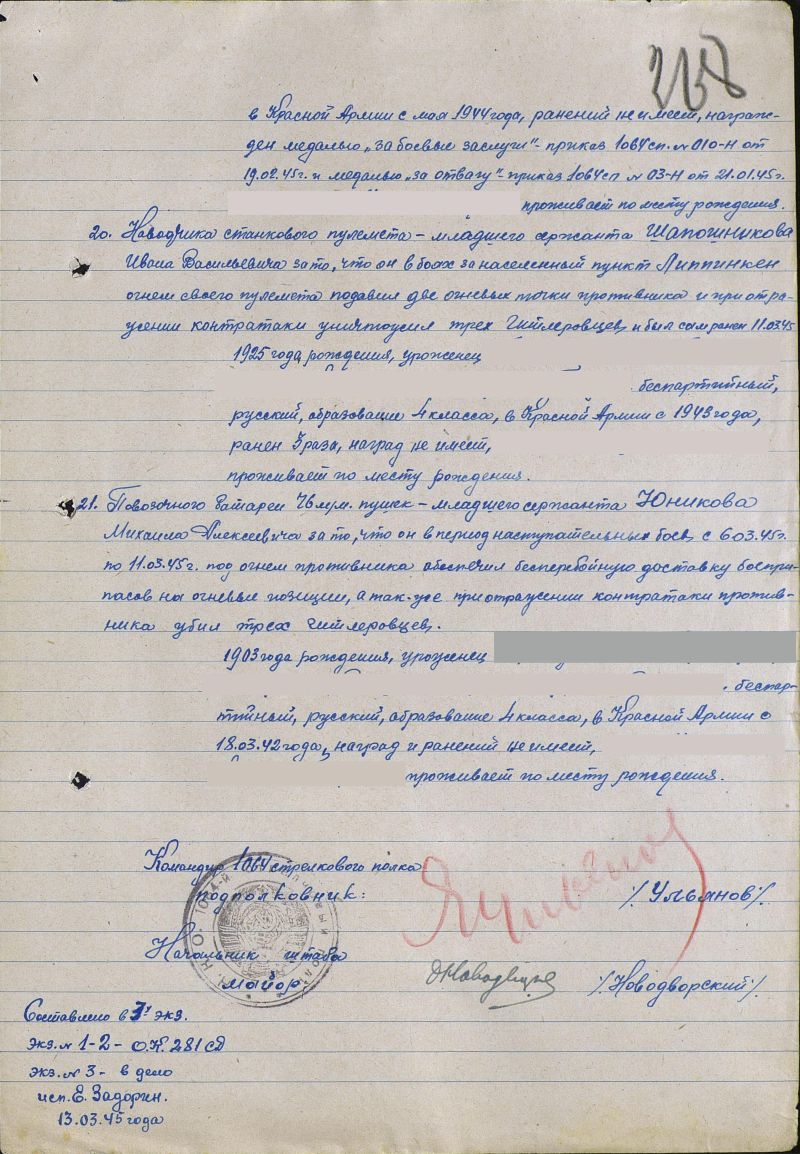 в Красной Армии с мая 1944 года, ранений не имеет, награж-
ден медалью „за боевые заслуги"- приказ 1064 сп. № 010-Н от
19.02.45 г. и медалью „за отвагу"- приказ 1064 сп № 03-Н от 21.01.45 г.
проживает по месту рождения.
20. Наводчика станкового пулемета – младшего сержанта Шапошникова
Ивана Васильевича за то, что он в боях за населенный пункт Липпинкен
огнем своего пулемета подавил две огневых точки противника и при отра-
жении контратаки уничтожил трех гитлеровцев, и был сам ранен 11.03.45
1925 года рождения, уроженец
беспартийный,
русский, образование 4 класса, в Красной Армии с 1943 года,
ранен 3 раза, наград не имеет,
проживает по месту рождения.
21. Повозочного батареи 76 м.м. пушек – младшего сержанта Юникова
Михаила Алексеевича за то, что он в период наступательных боев с 6.03.45 г.
по 11.03.45 г. под огнем противника обеспечил бесперебойную доставку боепри-
пасов на огневые позиции, а так-же при отражении контратаки против-
ника убил трех гитлеровцев.
1903 года рождения, уроженец
. беспар-
тийный, русский, образование 4 класса, в Красной Армии с
18.03.42 года, наград и ранений не имеет,
проживает по месту рождения.
Командир 1064 стрелкового полка
подполковник: /Ульянов/.
Начальник штаба
майор /Новодворский/.
Составлено в 3х экз.
экз. № 1-2 - О.К. 281 сд
экз. № 3 - в дело
исп. Е. Задорин.
13.03.45 года